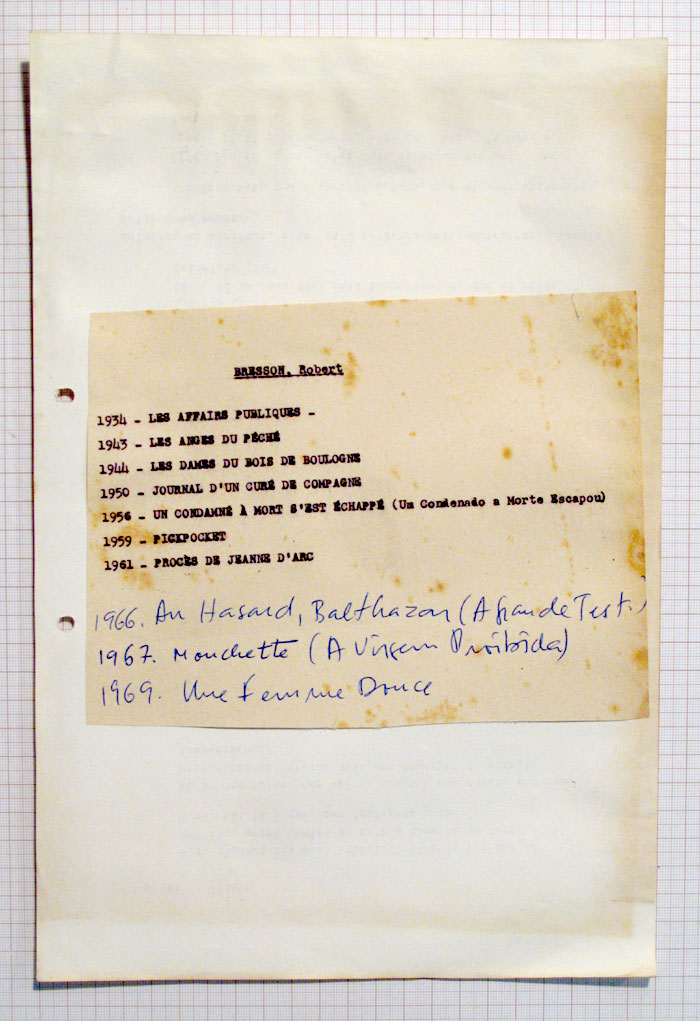 BRESSON, Robert
1934 - LES AFFAIRS PUBLIQUES -
1943 - LES ANGES DU PÉCHÉ
1944 - LES DAMES DU BOIS DE BOULOGNE
1950 - JOURNAL D'UN CURÉ DE COMPAGNE
1956 - UN CONDAMNÉ À MORT S'EST ÉCHAPPÉ (Um Condenado a Morte Escapou)
1959 - PICKPOCKET
1961 - PROCÈS DE JEANNE D'ARC
1966. Au Hasard, Balthazar (A grande Test.)
1967. Mouchette (A Virgem Proibida)
1969. Une Femme Douce